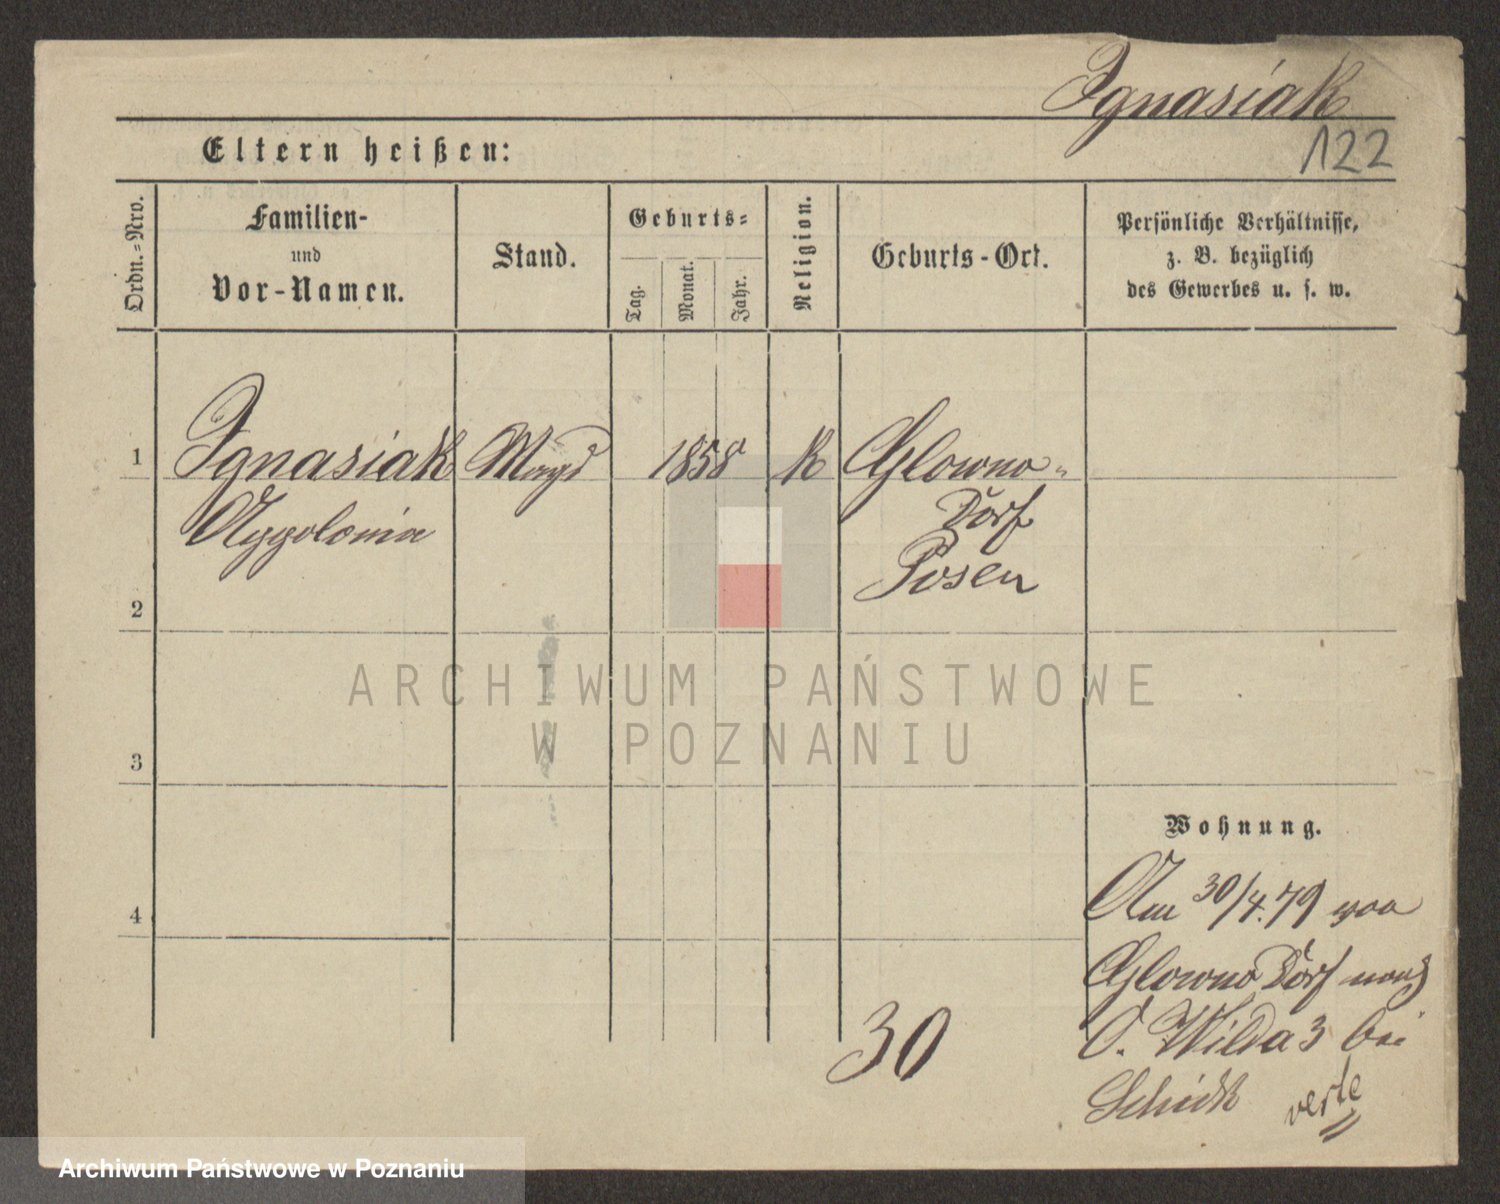 Ignasiak
122
Eltern heißen:
Ordn.-Nro.
Familien-
und
Vor-Namen.
Stand.
Geburts-
Tag.
Monat.
Jahr.
Religion.
Geburts-Ort.
Persönliche Verhältnisse,
z. B. bezüglich
des Gewerbes u. s. w.
1
Ignasiak
Magd
1858
K
Glowno-
Dorf
Appolonia
Posen
2
ARCHIWUM PAŃSTWOWE
W POZNANIU
3
Wohnung.
4
Am 30/4.79 von
Glowno Dorf nach
O. Wilda 3 bei
Schick verte
30
Archiwum Państwowe w Poznaniu